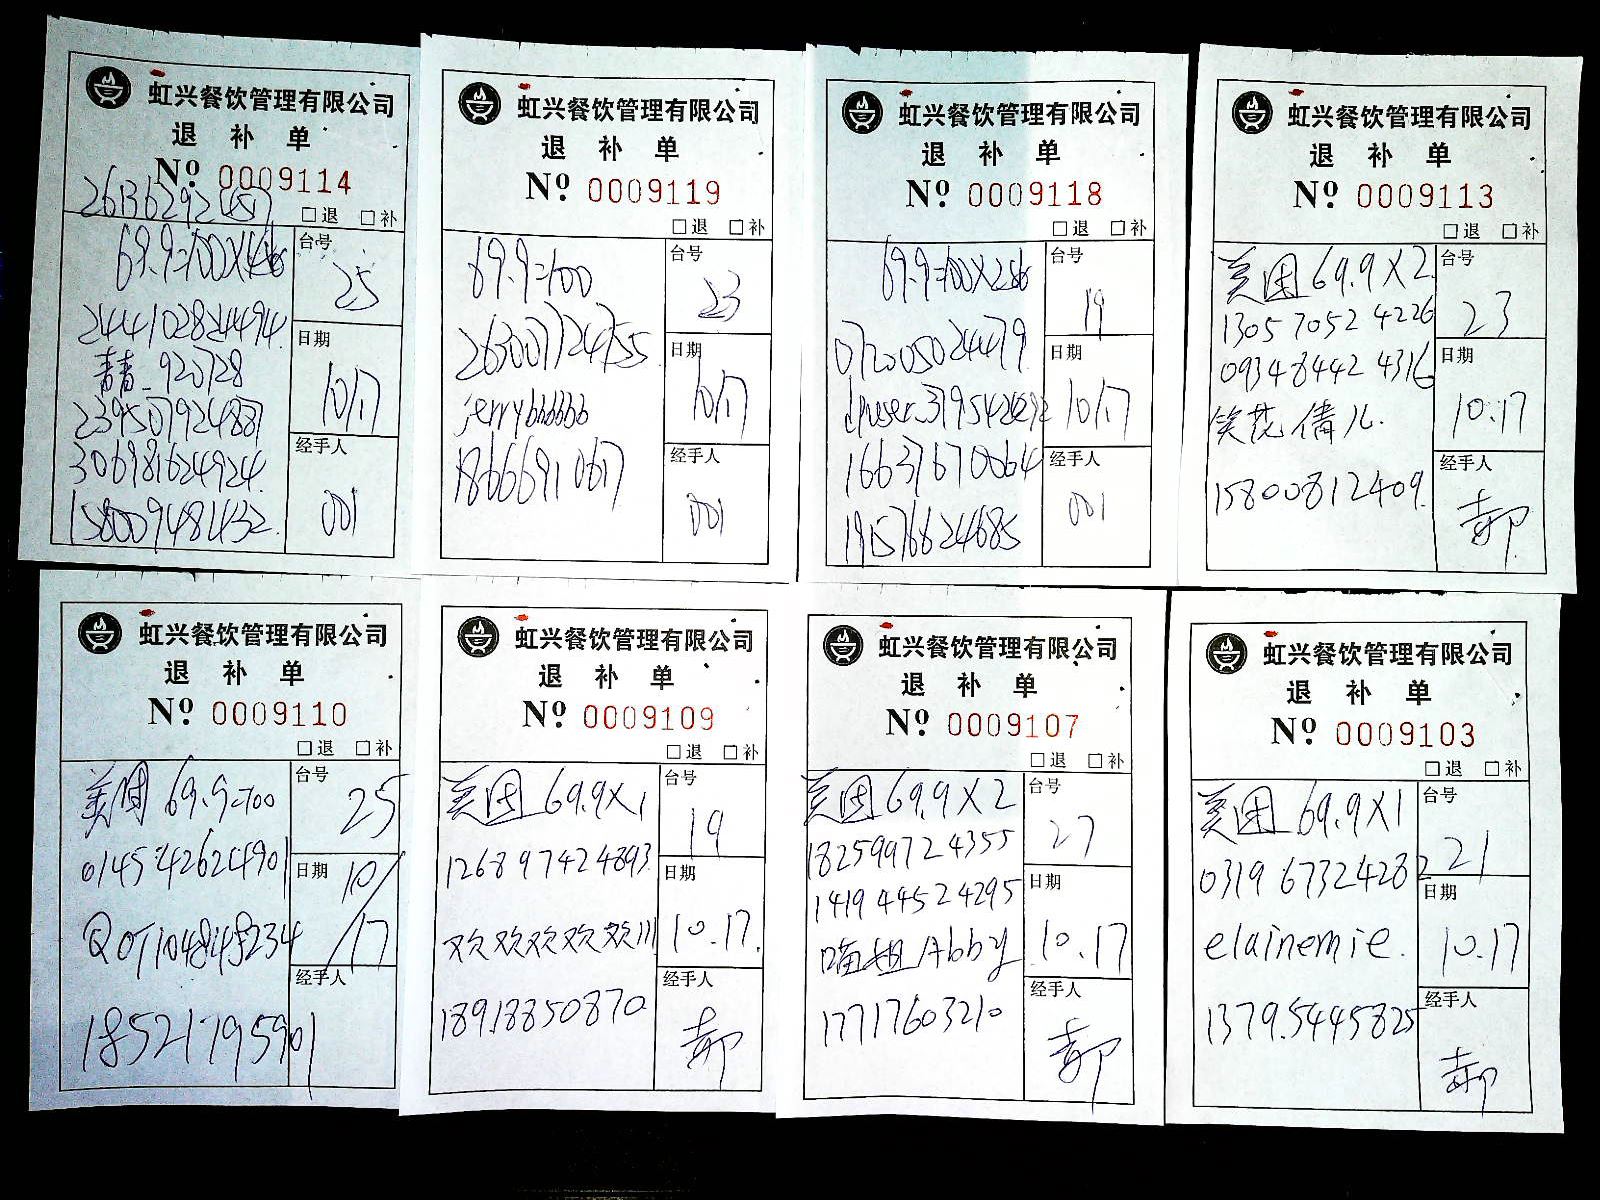 虹兴餐饮管理有限公司
退 补 单
Nº 0009114
□退 □补
69.9=100X
244102824494
青青_920728
239507924887
306981624924
台号
25
日期
10/17
经手人
001
虹兴餐饮管理有限公司
退 补 单
Nº 0009119
□退 □补
69.9=100
263007724755
jerrybbbbbb
18666910617
台号
23
日期
10/17
经手人
001
虹兴餐饮管理有限公司
退 补 单
Nº 0009118
□退 □补
69.9=100X
072005024479
16637670064
191576624685
台号
19
日期
10/17
经手人
001
虹兴餐饮管理有限公司
退 补 单
Nº 0009113
□退 □补
美团 69.9X2
1305 7052 4226
0934 8442 4316
笑花倩儿.
15800812409
台号
23
日期
10.17
经手人
郝
虹兴餐饮管理有限公司
退 补 单
Nº 0009110
□退 □补
美团 69.9=100
014542624901
18521795901
台号
25
日期
10/17
经手人
虹兴餐饮管理有限公司
退 补 单
Nº 0009109
□退 □补
美团 69.9X1
1268 9742 4893
欢欢欢欢欢111
18918850870
台号
19
日期
10.17.
经手人
郝
虹兴餐饮管理有限公司
退 补 单
Nº 0009107
□退 □补
美团 69.9X2
182599724355
1419 4452 4295
喵姐Abby
17717603210
台号
27
日期
10.17
经手人
郝
虹兴餐饮管理有限公司
退 补 单
Nº 0009103
□退 □补
美团 69.9X1
0319 6732 4282
elainemie.
13795445825
台号
21
日期
10.17
经手人
郝